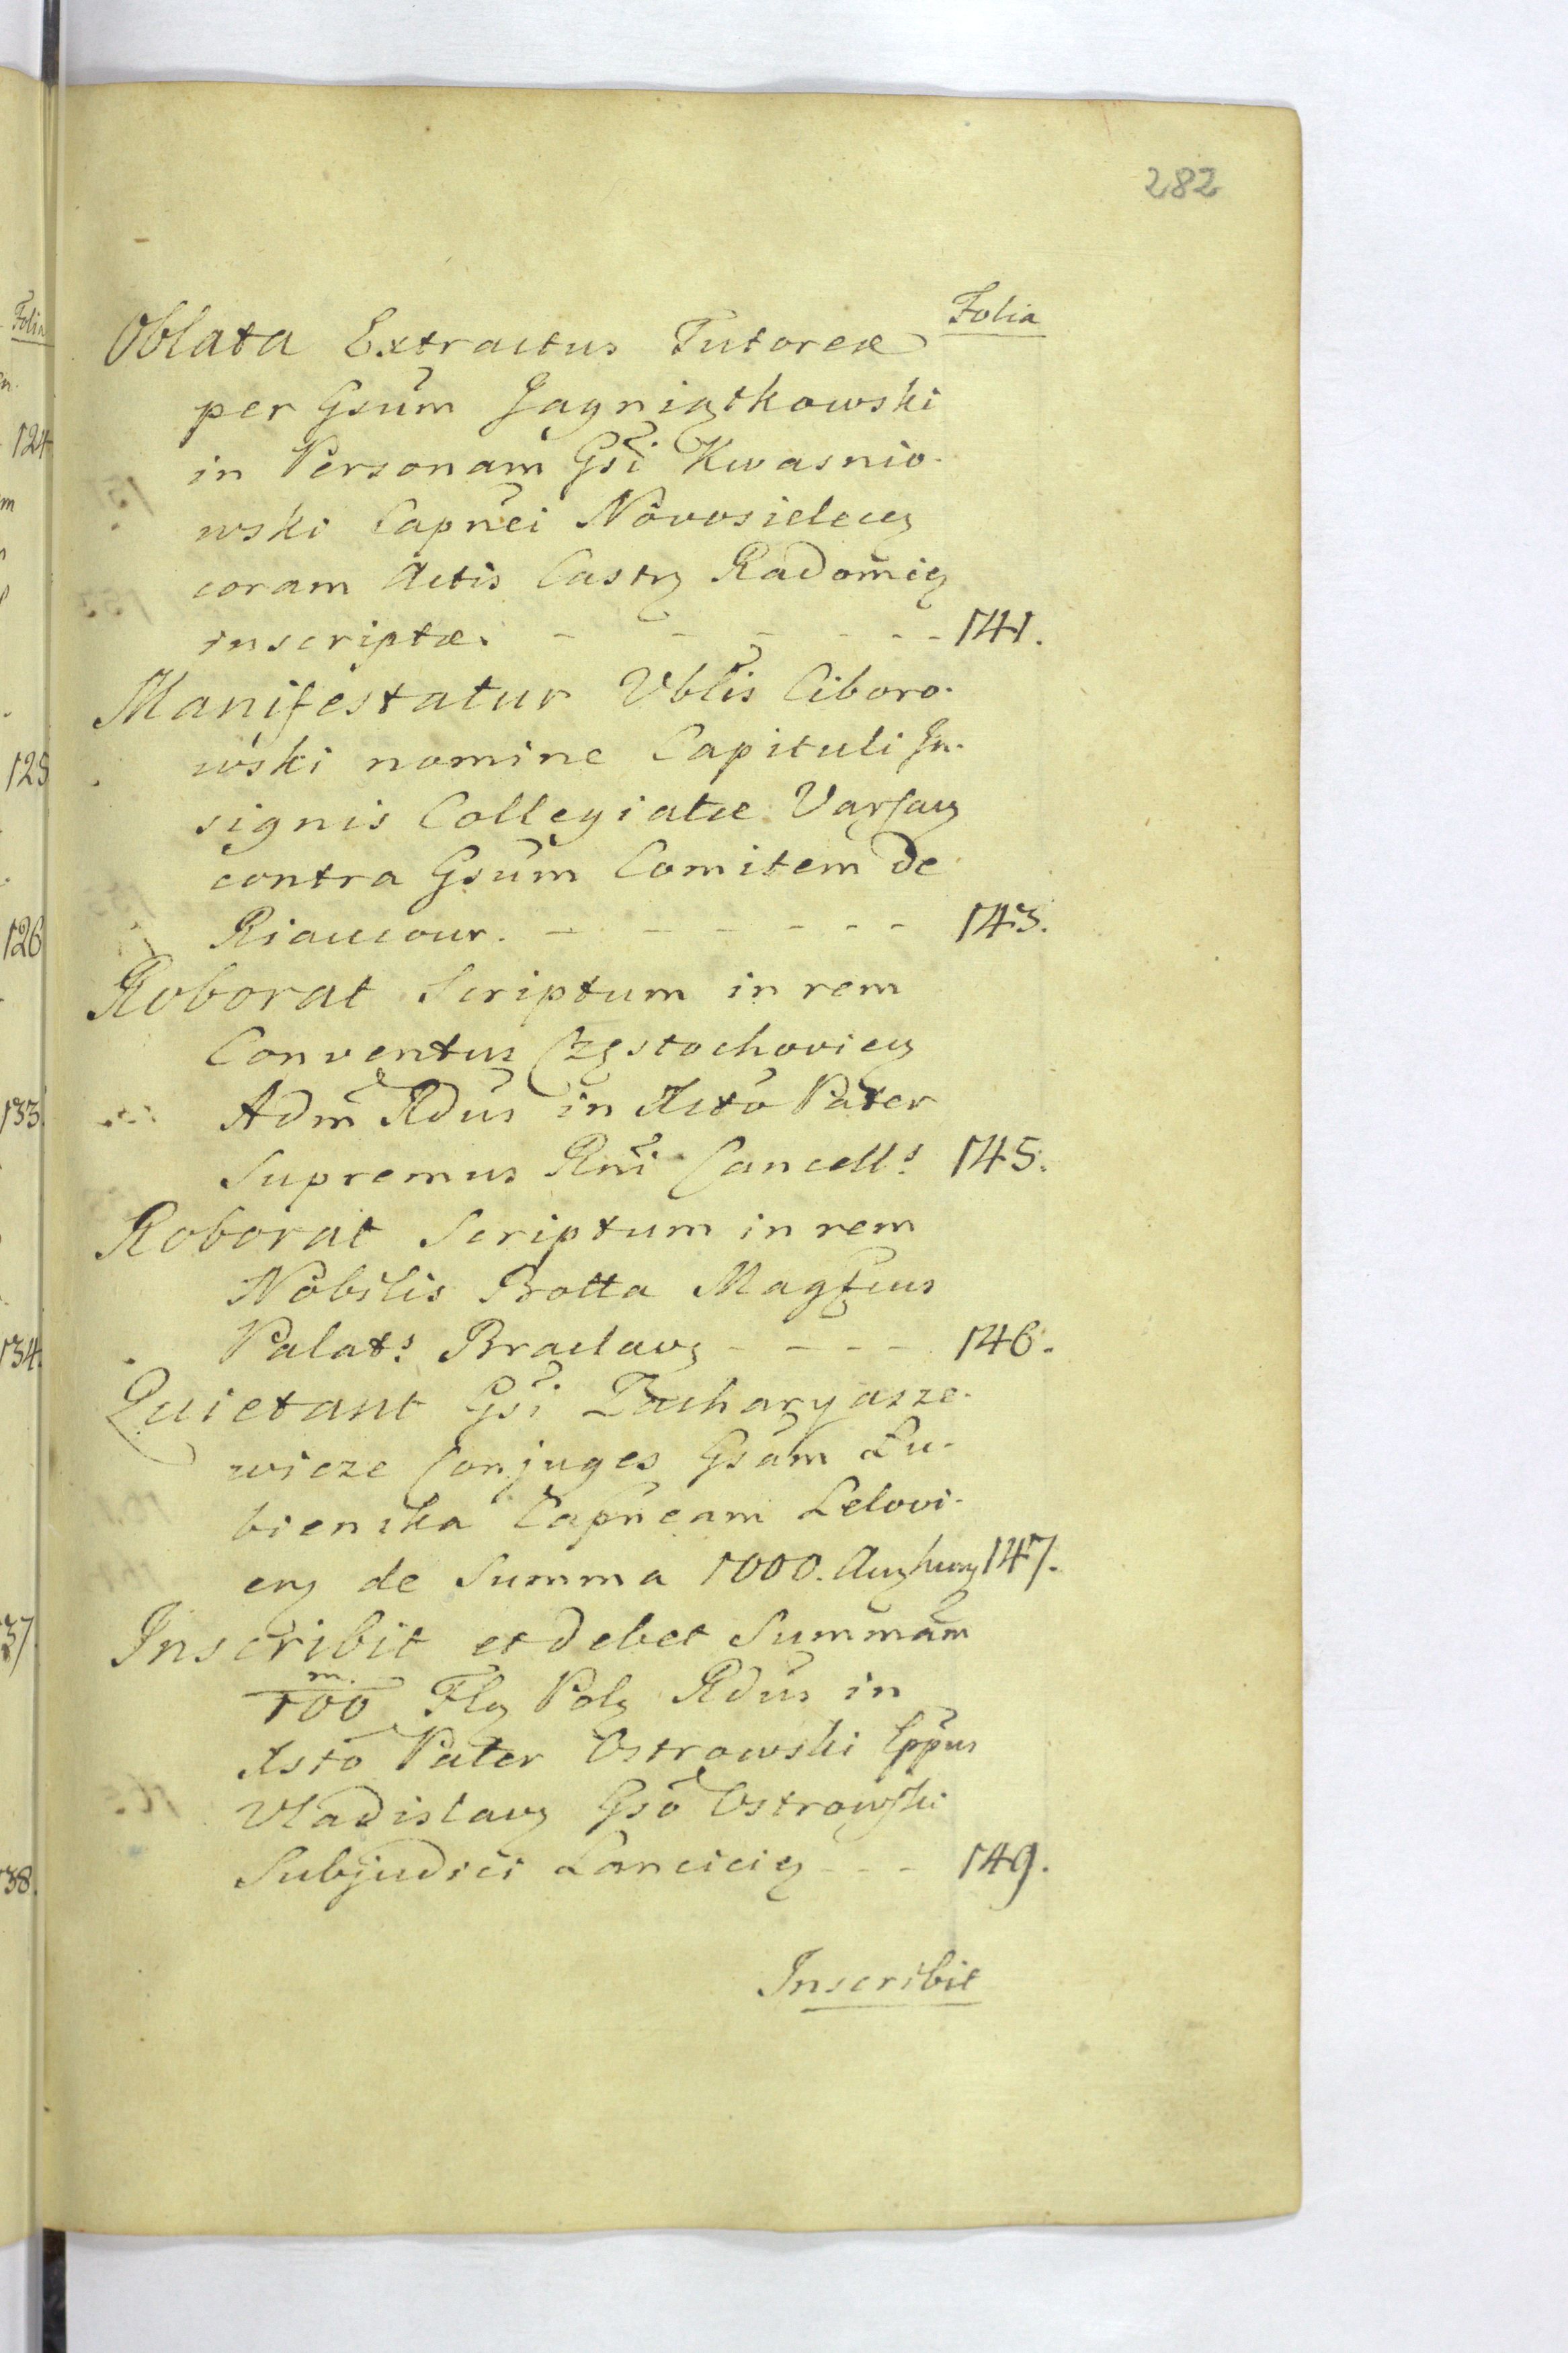 282
Folia
Oblata Extractus Tutoreæ
per Gsum Jagniątkowski
in Personam Gsi Kwasnio-
wski Capnei Novosielecen
coram Actis Castr Radomien
inscriptæ. - - - - - - 141.
Manifestatur Vblis Ciboro-
wski nomine Capituli In-
signis Collegiatæ Varsav
contra Gsum Comitem de
Riaucour. - - - - - - 143.
Roborat Scriptum in rem
Conventus Częstochovien
Adm Rdus in Xsto Pater
Supremus Rni Cancells 145.
Roborat Scriptum in rem
Nobilis Botta Magfcus
Palats Braclav - - - - 146.
Quietant Gsi Zacharyasze-
wicze Conjuges Gsam Lu-
bienska Capneam Lelovi-
en de Summa 1000. Aur hung 147.
Inscribit et debet Summam
m.
100 Flo Pol Rdus in
Xsto Pater Ostrowski Eppus
Vladislav Gso Ostrowski
Subjudici Lancicien - - - 149.
Inscribit
Folia
124
125
126
133
134
137
138.